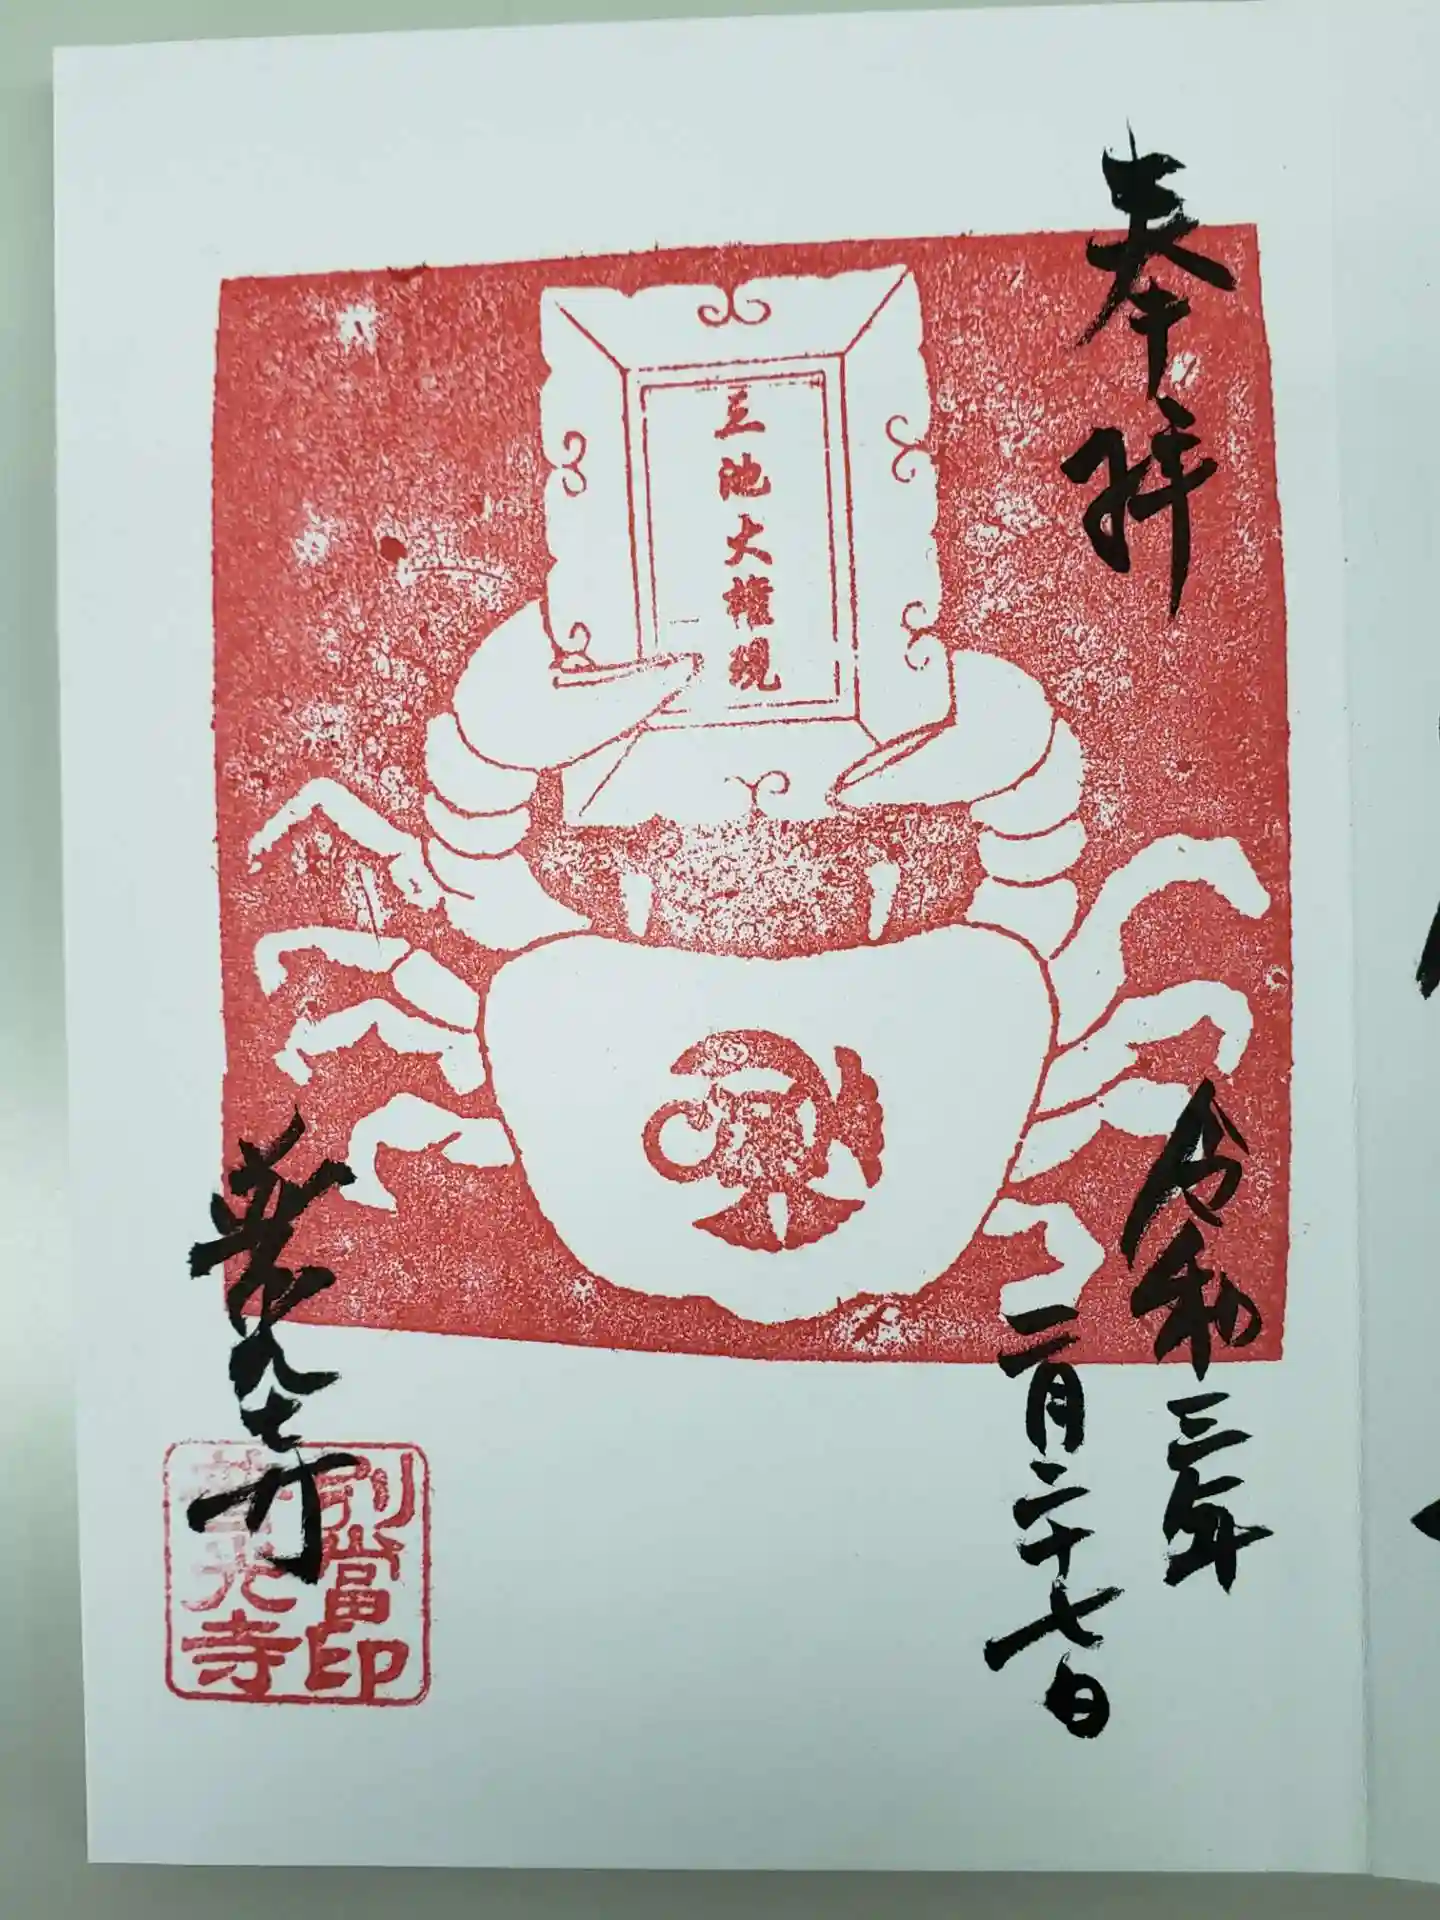 奉拝
令和三年
二月二十七日
三池大権現
普光寺
別當印
普光寺